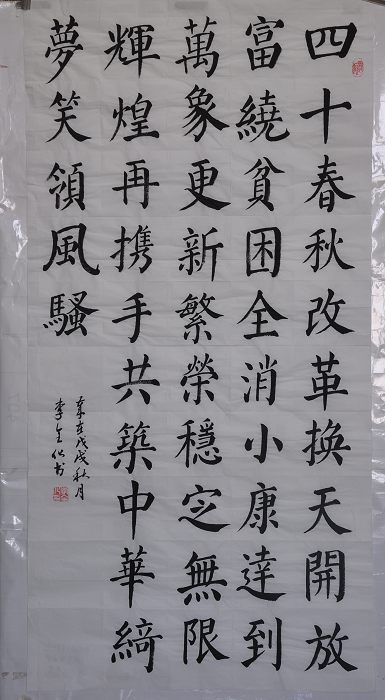 四十春秋改革換天開放
富繞貧困全消小康達到
萬象更新繁榮穩定無限
輝煌再携手共築中華綺
夢笑領風騷
歲在戊戌秋月
李书